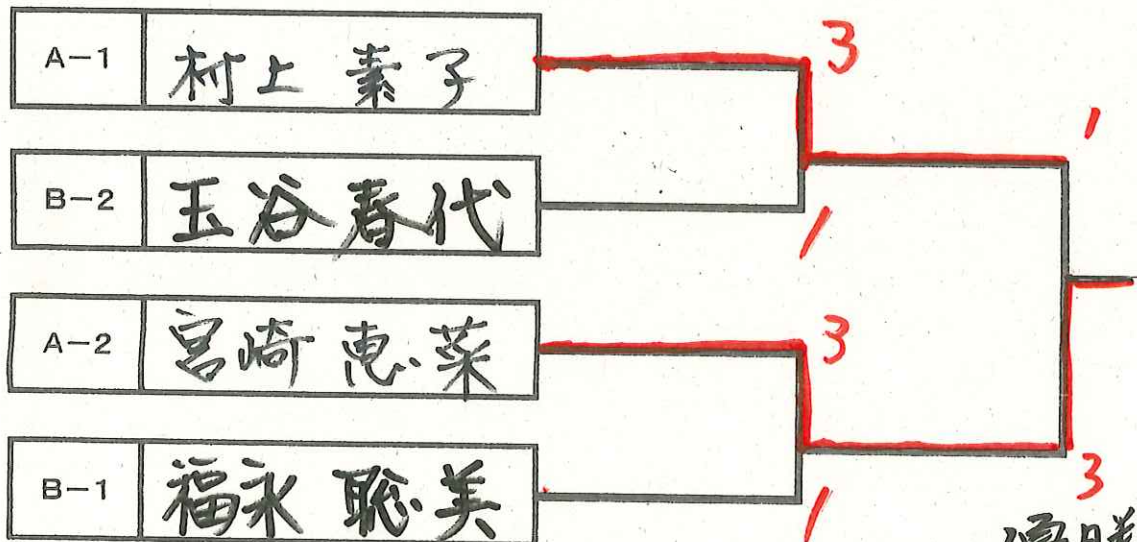 A-1 村上 素子 3
1
B-2 玉谷春代 1
A-2 宮崎 恵菜 3
B-1 福永 聡美 1
3
優勝